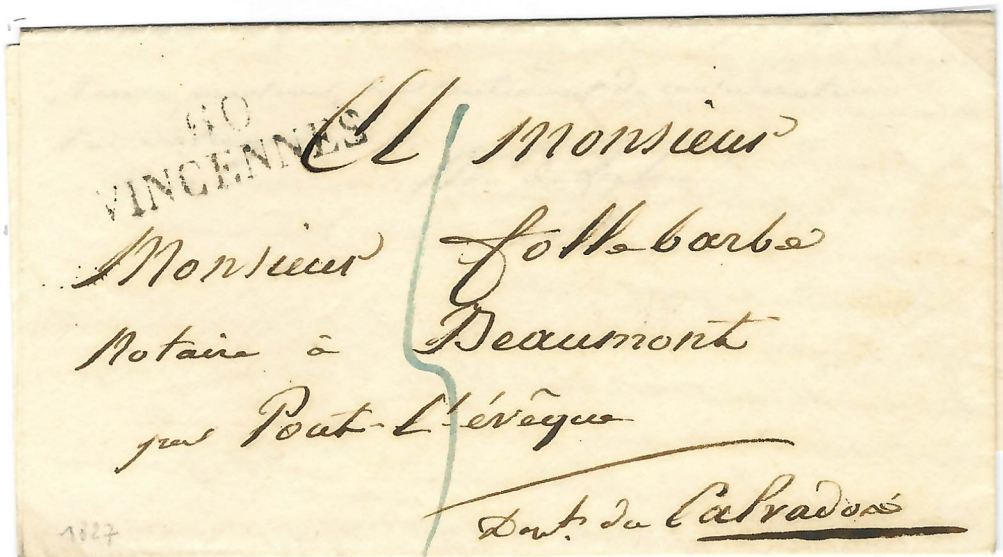 60
VINCENNES
A Monsieur
Monsieur follebarbe
Notaire à Beaumont
par Pont-L'évêque
Dept. du Calvados
1827